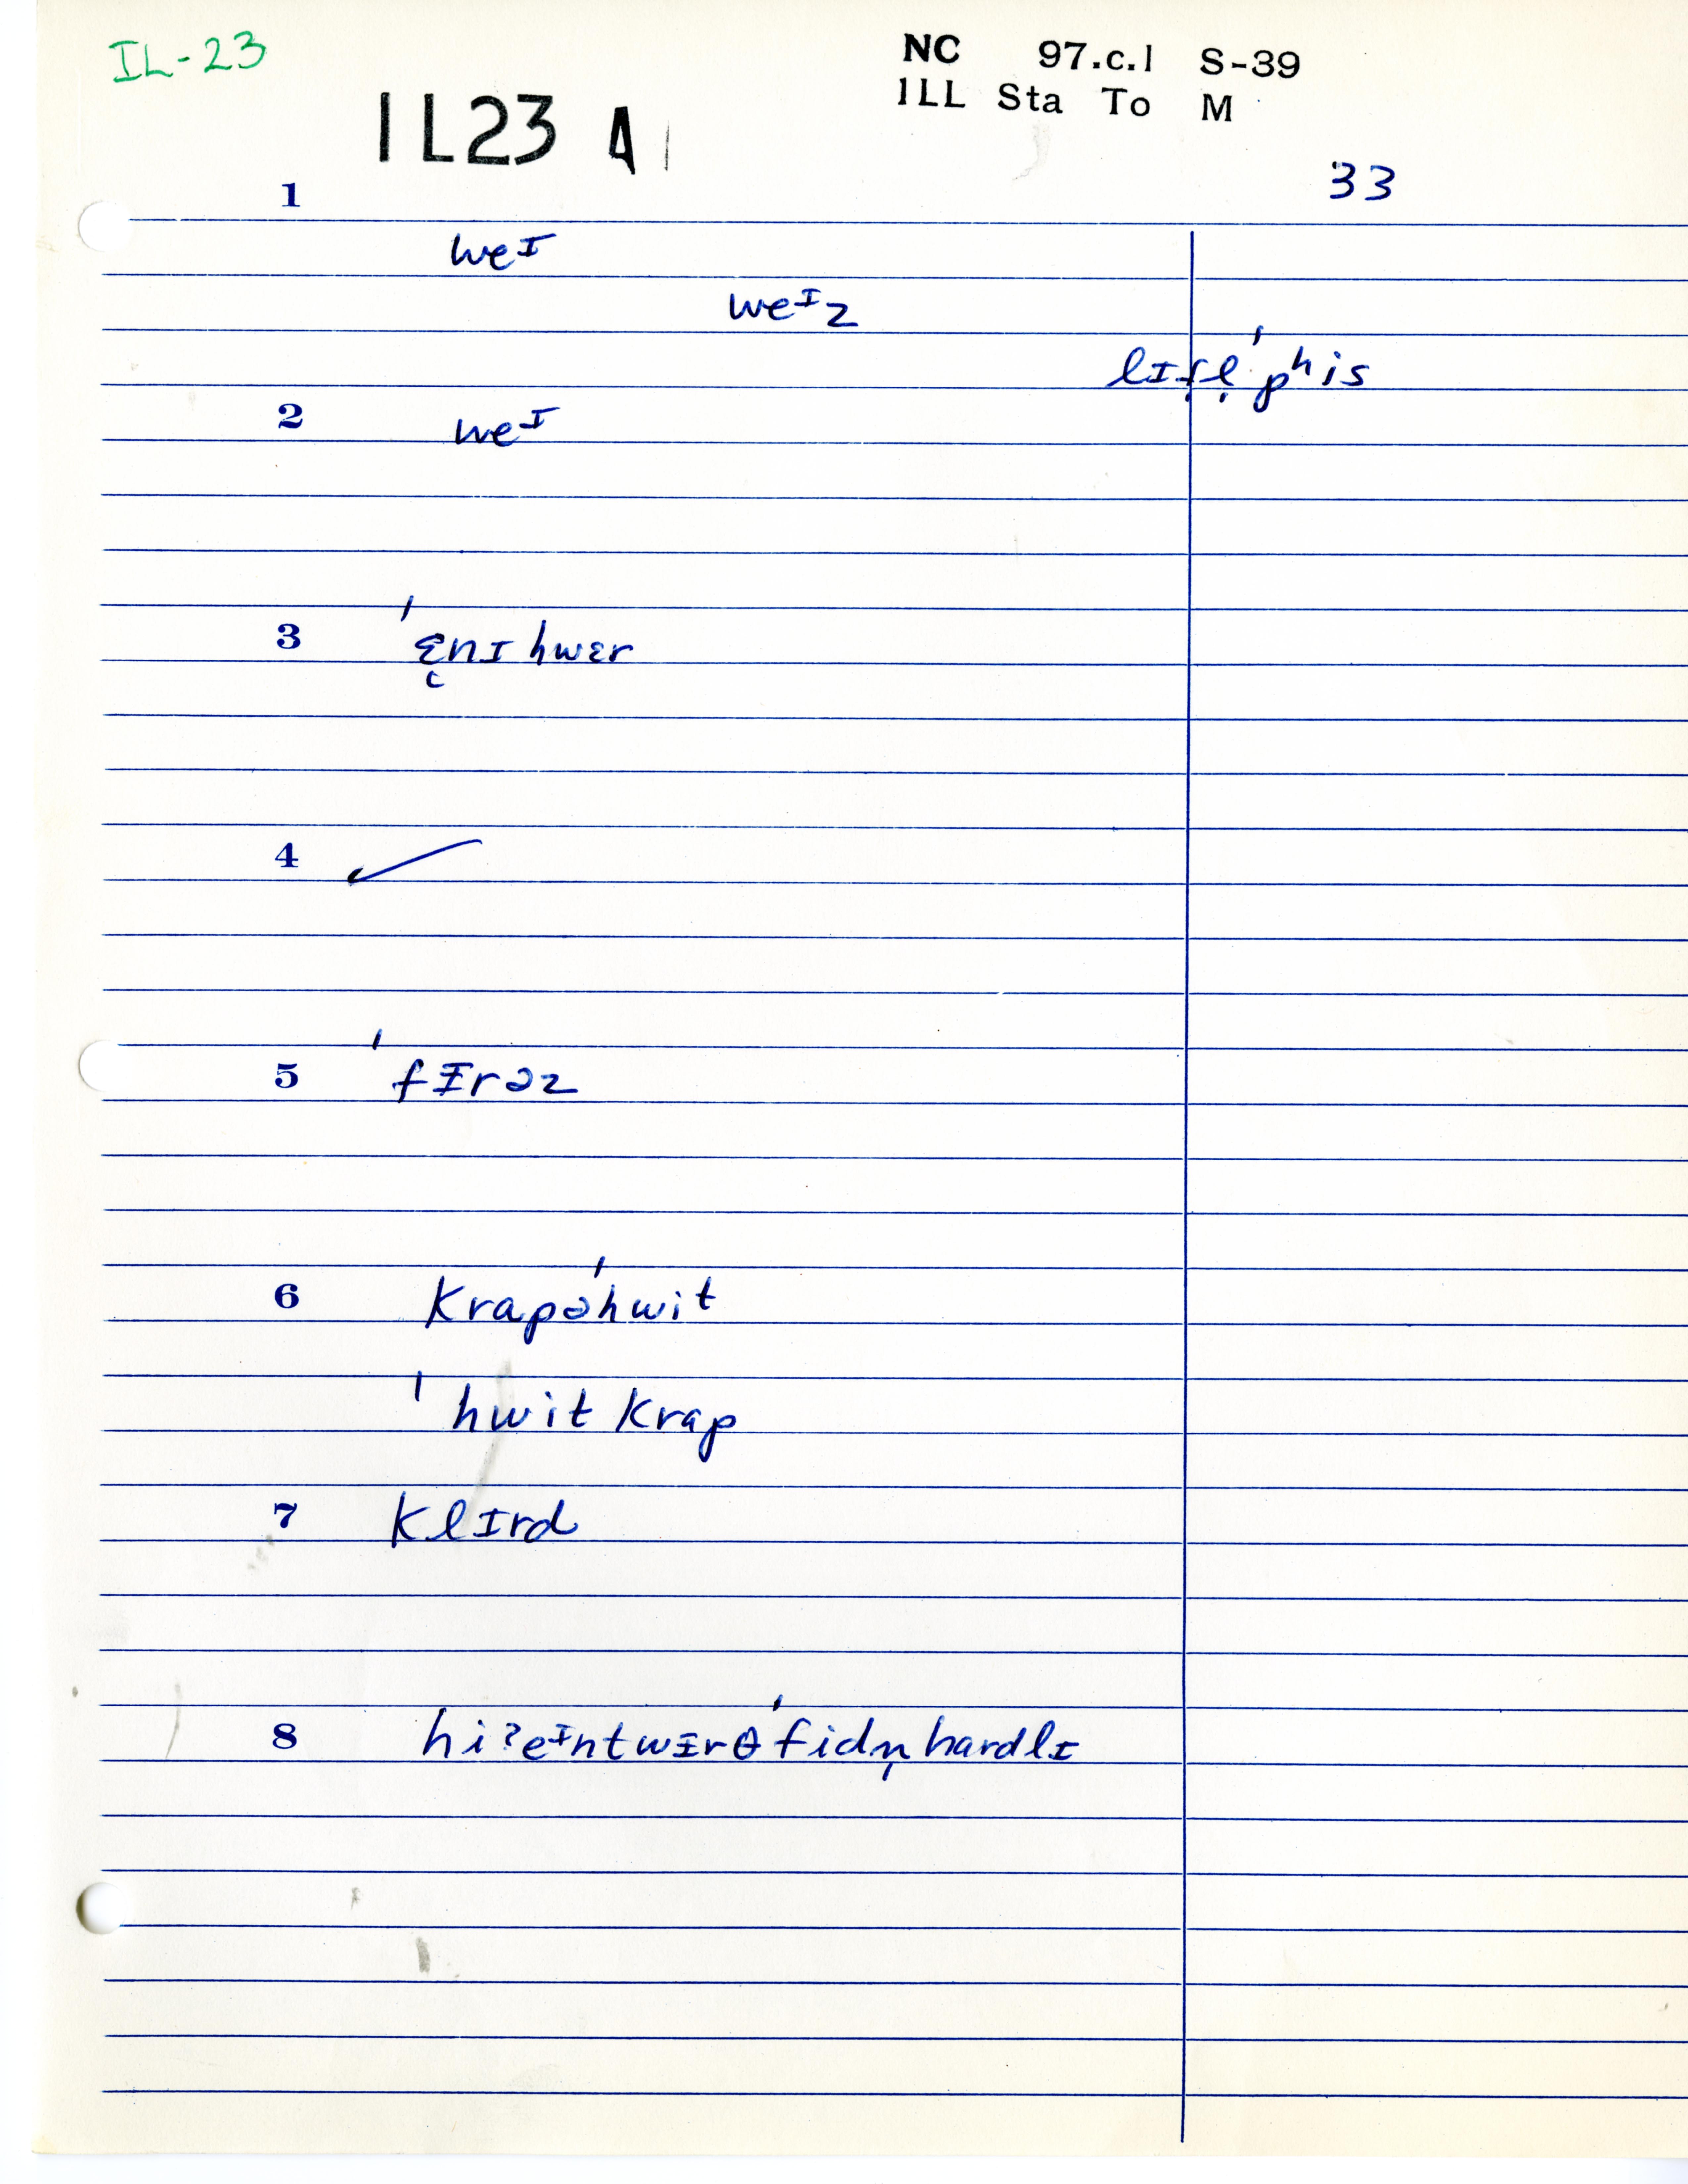 IL-23
NC 97.c.1 S-39
ILL Sta To M
IL23 A1
33
1
weᴵ
weᴵz
lɪɾ̣ḷ ˈpʰis
2 weᴵ
3 ˈɛ̜nɪhwɛr
4 ✓
5 ˈfɪrəz
6 krapəˈhwit
ˈhwit krap
7 klɪrd
8 hiʔeᴵntwɪrθˈfidn̩hardlɪ